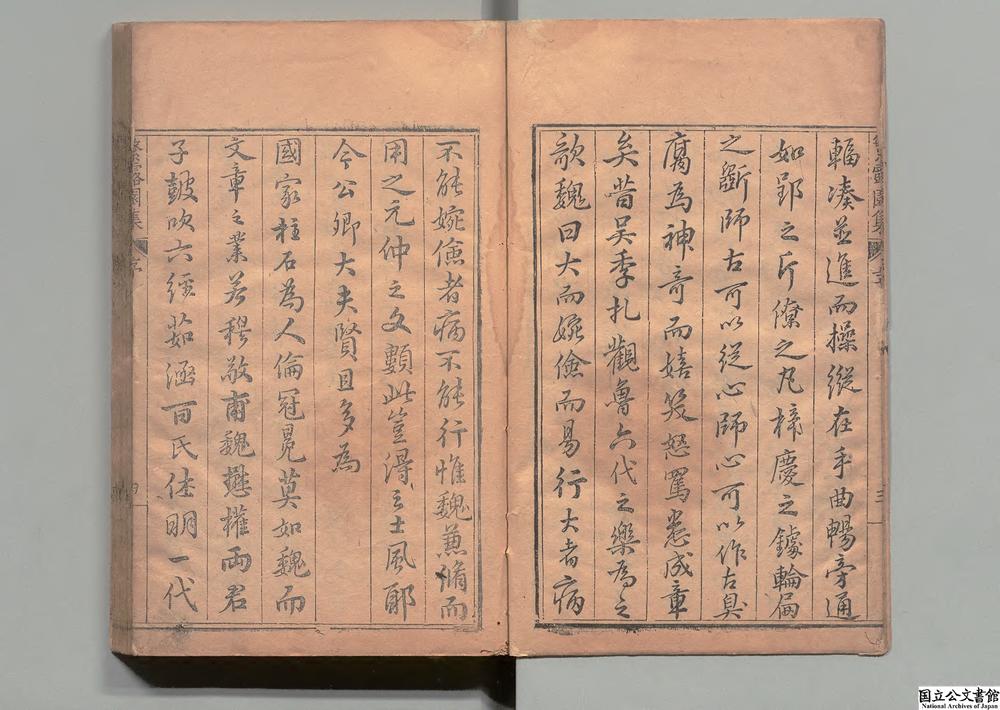 輻湊並進而操縱在手曲暢旁通
如郢之斤僚之丸梓慶之鐻輪扁
之斲師古可以從心師心可以作古臭
腐為神奇而嬉笑怒罵悉成章
矣昔吴季札觀魯六代之樂為之
歌魏曰大而婉儉而易行大者病
不能婉儉者病不能行惟魏兼脩而
用之元仲之文類此豈得之士風耶
今公卿大夫賢且多為
國家柱石為人倫冠冕莫如魏而
文章之業若穆敬甫魏懋權兩君
子鼓吹六經茹涵百氏佐明一代
露園集
序
三
露園集
序
四
国立公文書館
National Archives of Japan